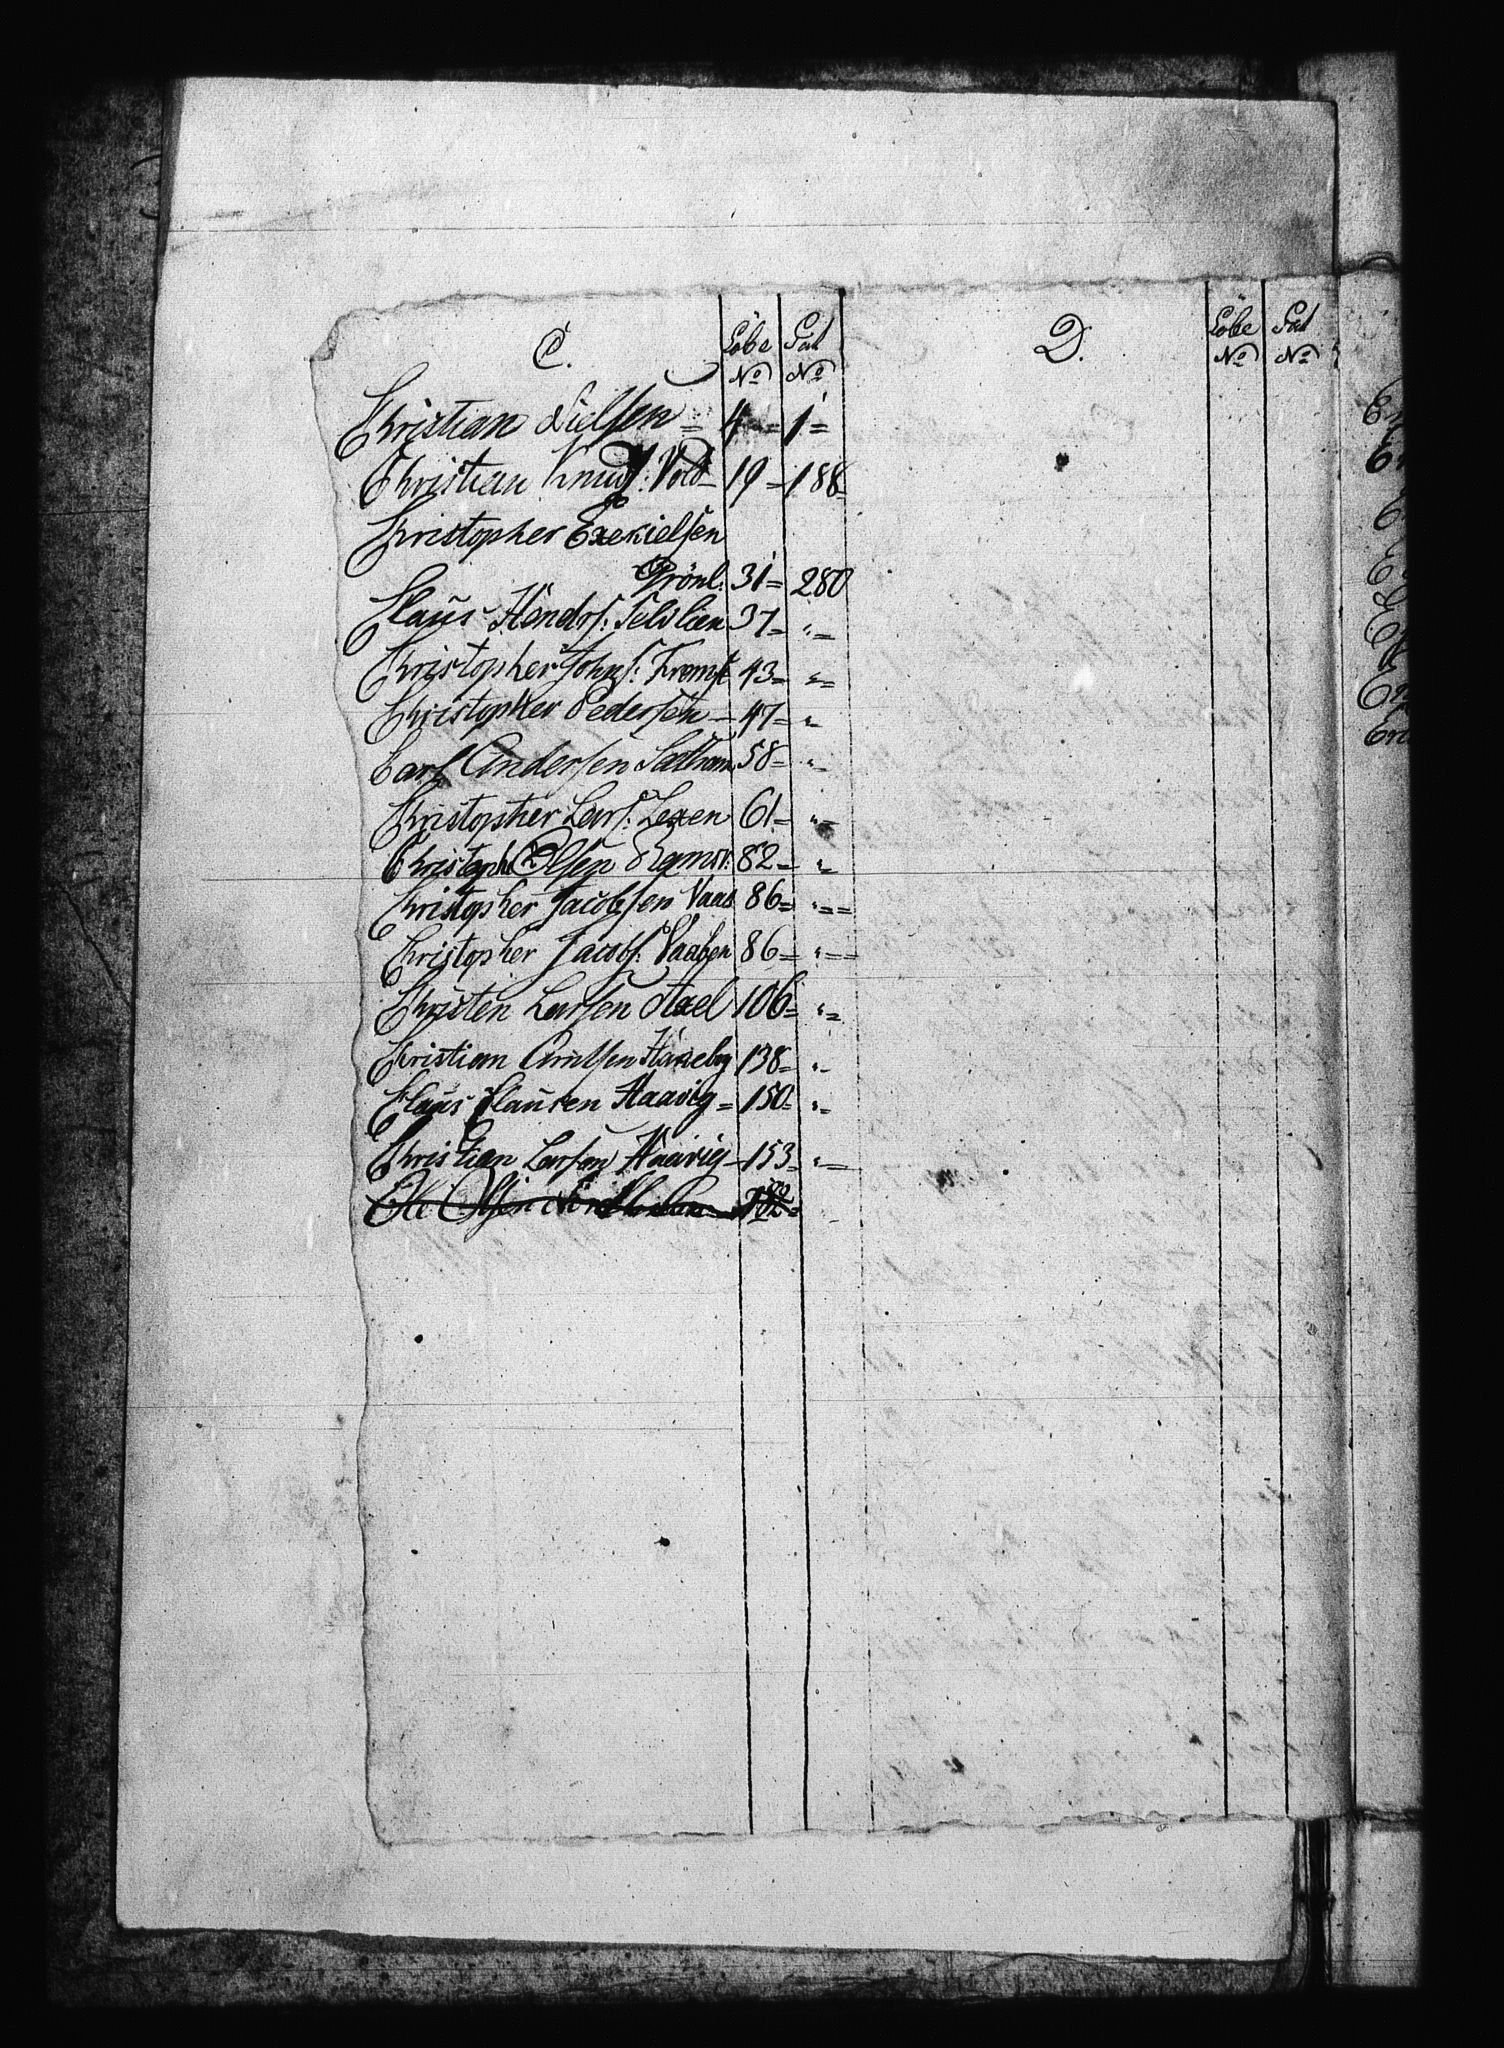 C. Löbe No Pat No
D. Löbe No Pat No
Christian Nielsen = 4 = 1 =
Christian Knuds: Vold 19 = 188
Christopher Exekielsen
Grönl: 31 = 280
Claus Hendrs: Selslien 37 = " =
Christopher Johns: Tromst 43 = " =
Christopher Pedersen 47 = "
Carl Andersen 58 = "
Christopher Lars: Lexen 61 = " =
Olsen 82 = "
Christopher Jacobsen Vaas 86 = " = =
Christopher Jacobs: Vaaben 86 = " = =
Christen Larsen 106 = " =
Christian Arntsen 138 = "
Claus Clausen Haavig = 150 = "
Christian Larsen Haavig 153 = " =
Ole Olsen